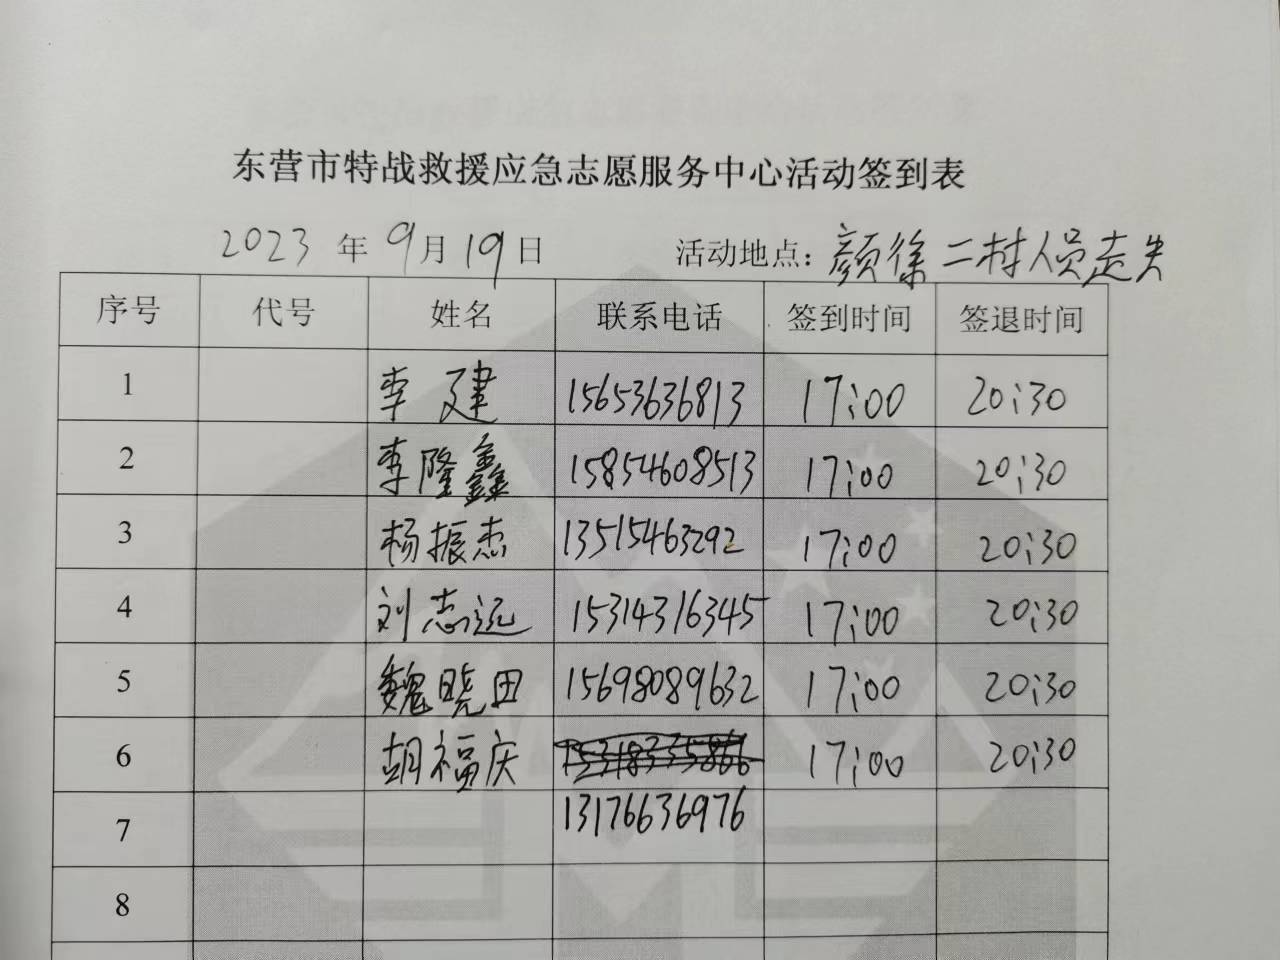 东营市特战救援应急志愿服务中心活动签到表
2023 年 9月 19日 活动地点：颜徐二村人员走失
序号 代号 姓名 联系电话 签到时间 签退时间
1 李建 15653636813 17:00 20:30
2 李隆鑫 15854608513 17:00 20:30
3 杨振杰 13515463292 17:00 20:30
4 刘志远 15314316345 17:00 20:30
5 魏晓田 15698089632 17:00 20:30
6 胡福庆 17:00 20:30
7 13176636976
8